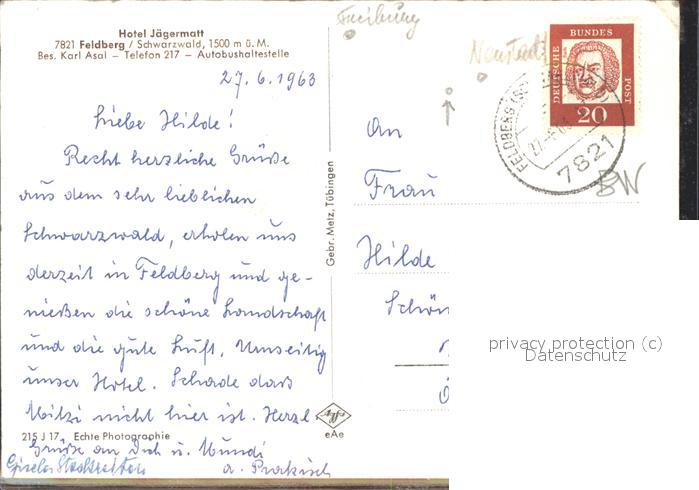 Hotel Jägermatt
7821 Feldberg / Schwarzwald, 1500 m ü. M.
Bes. Karl Asal — Telefon 217 — Autobushaltestelle
27.6.1963
Liebe Hilde!
Recht herzliche Grüße
aus dem sehr lieblichen
Schwarzwald, erholen uns
derzeit in Feldberg und ge-
nießen die schöne Landschaft
und die gute Luft. Umseitig
unser Hotel. Schade daß
Mitzi nicht hier ist. Herzl.
215 J 17 Echte Photographie
Grüße an Dich u. Mundi
Gisela
Gebr. Metz, Tübingen
eAe
Freiburg
Neustadt
DEUTSCHE BUNDES POST
20
FELDBERG
27.-6.63
7821
BW
An
Frau
Hilde
Schön
privacy protection (c)
Datenschutz